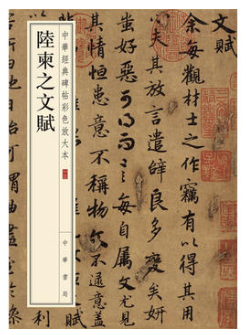 文賦
余每觀材士之作竊有以得其用
心夫其放言遣辭良多變矣妍
蚩好惡可得而言每自属文尤見
其情恒患意不稱物文不逮意蓋
中華經典碑帖彩色放大本
陸柬之文賦
中華書局